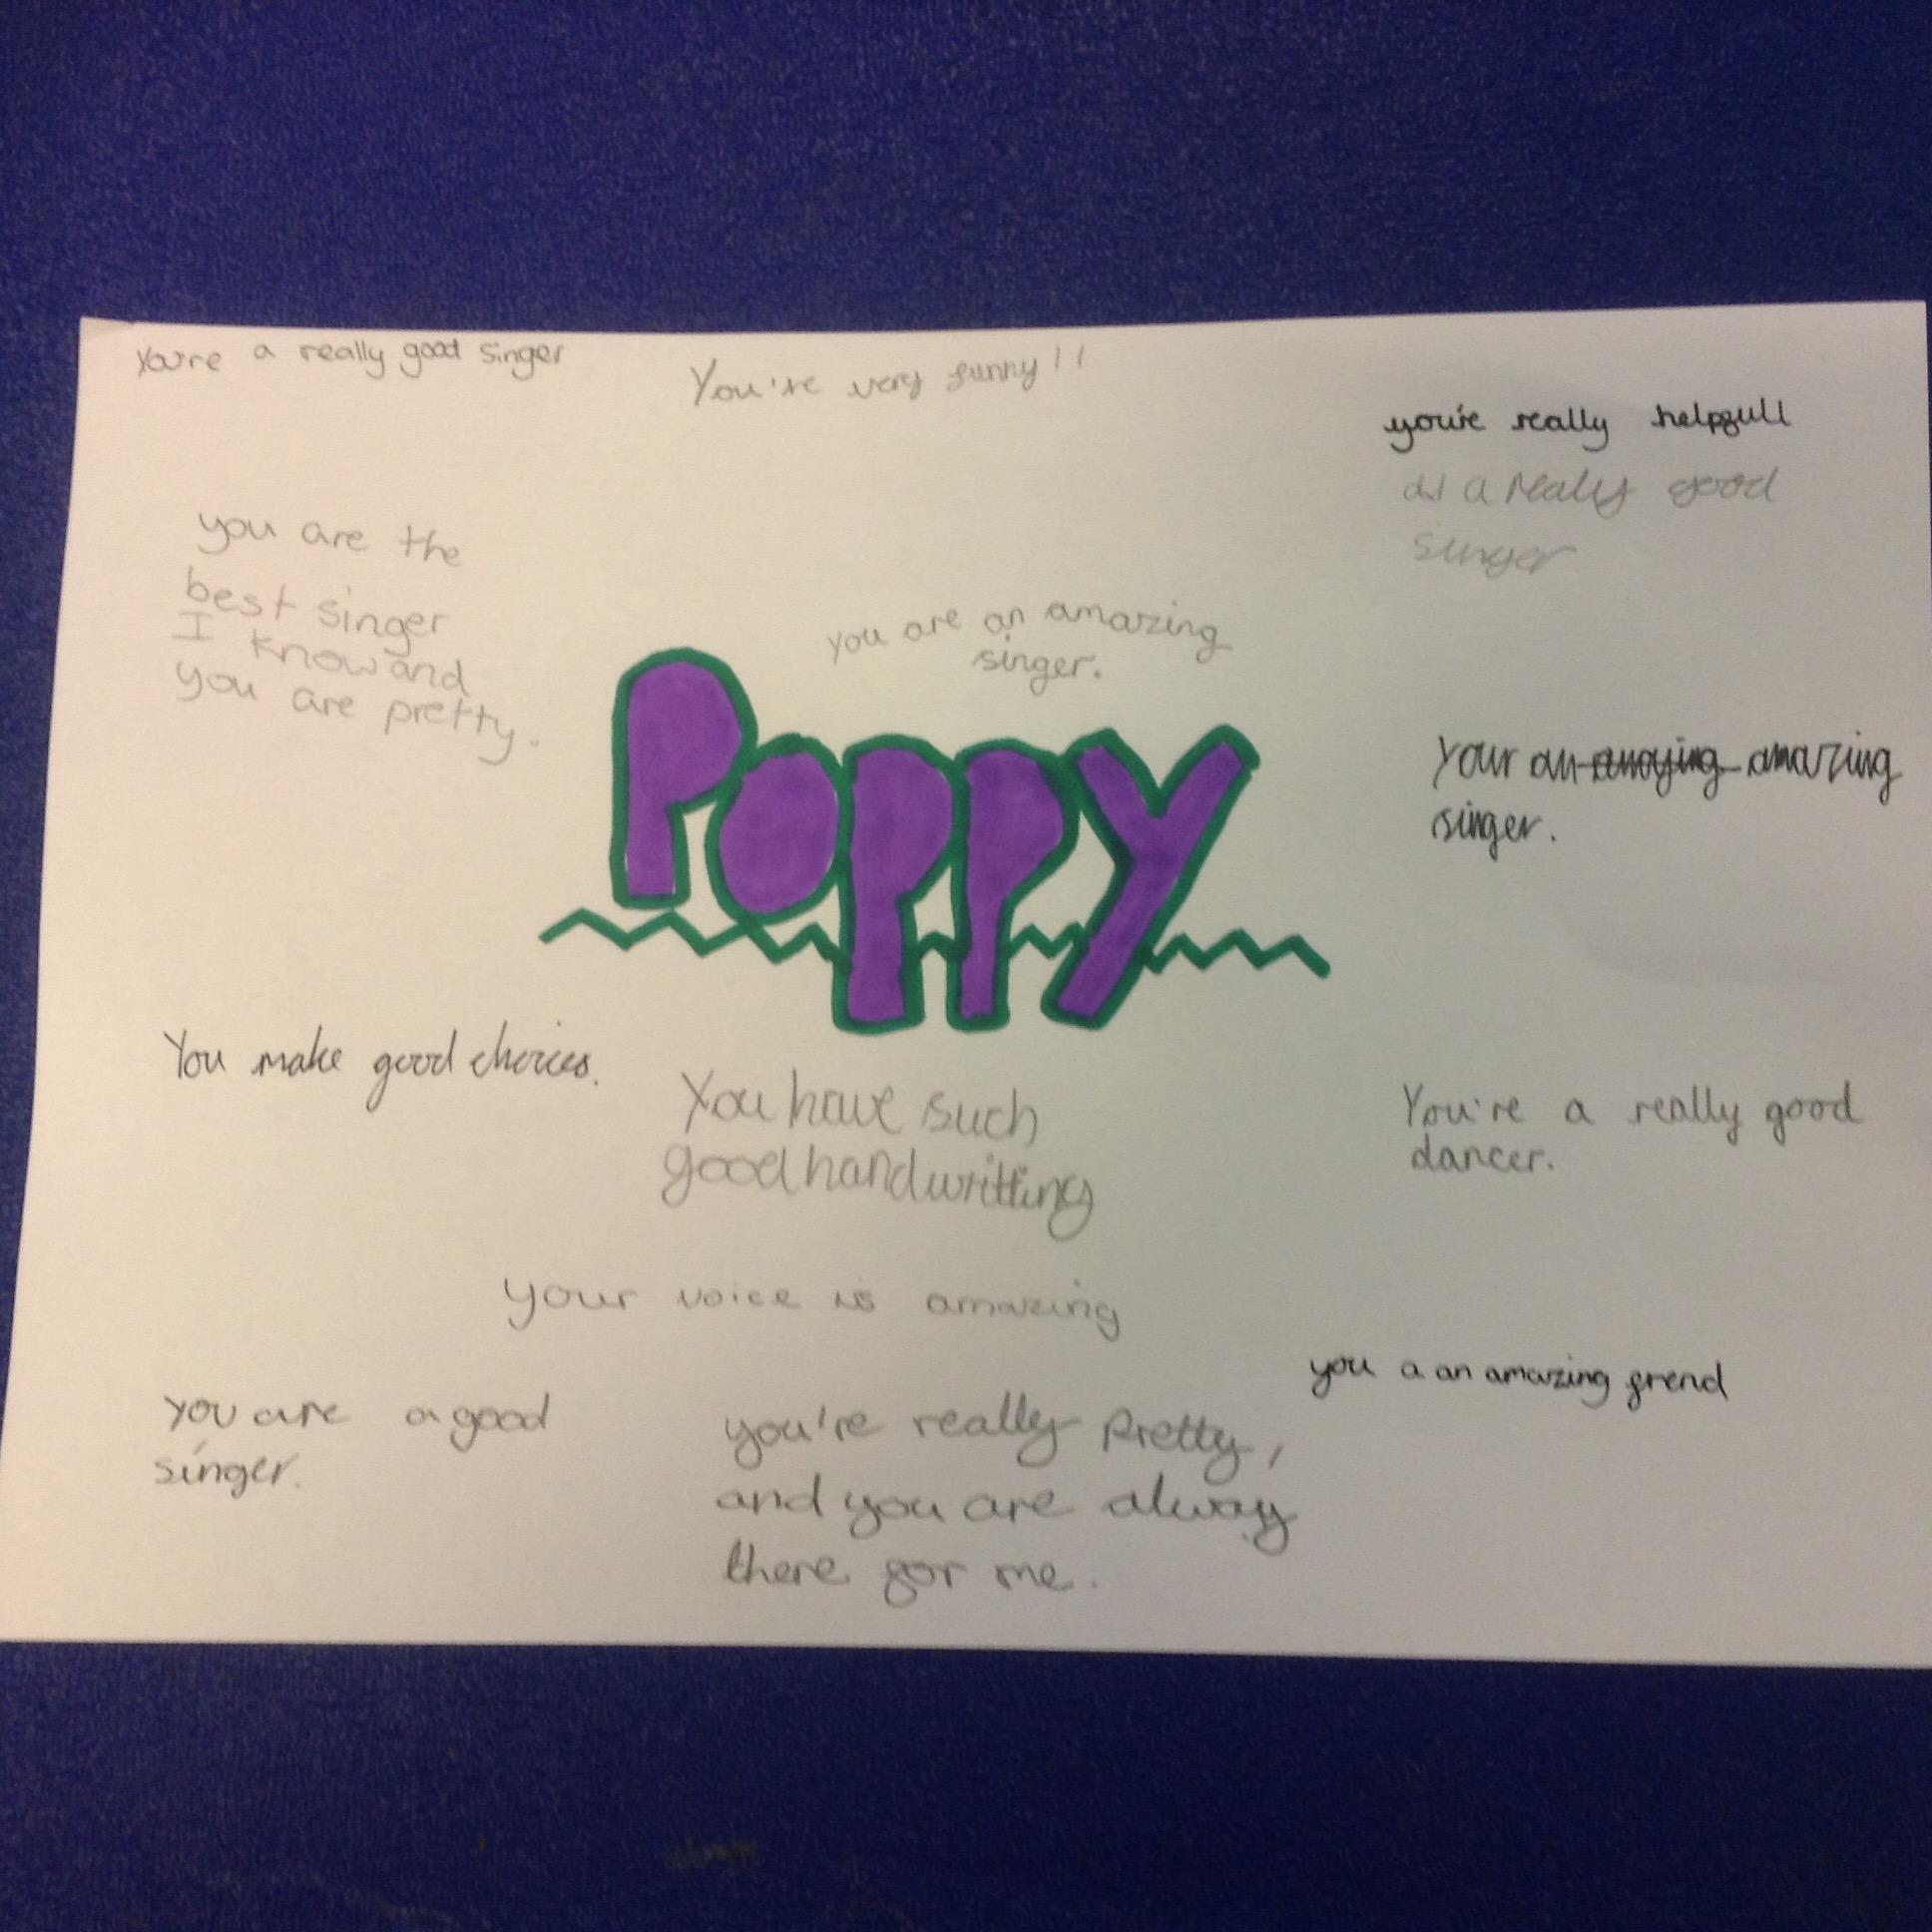 You're a really good singer
You're very funny!!
you're really helpfull
a really good
singer
you are the
best singer
I know and
you are pretty.
you are an amazing
singer.
POPPY
Your an annoying amazing
singer.
You make good choices.
You have such
good handwritting
You're a really good
dancer.
your voice is amazing
you a an amazing frend
you are a good
singer.
you're really pretty,
and you are alway
there for me.